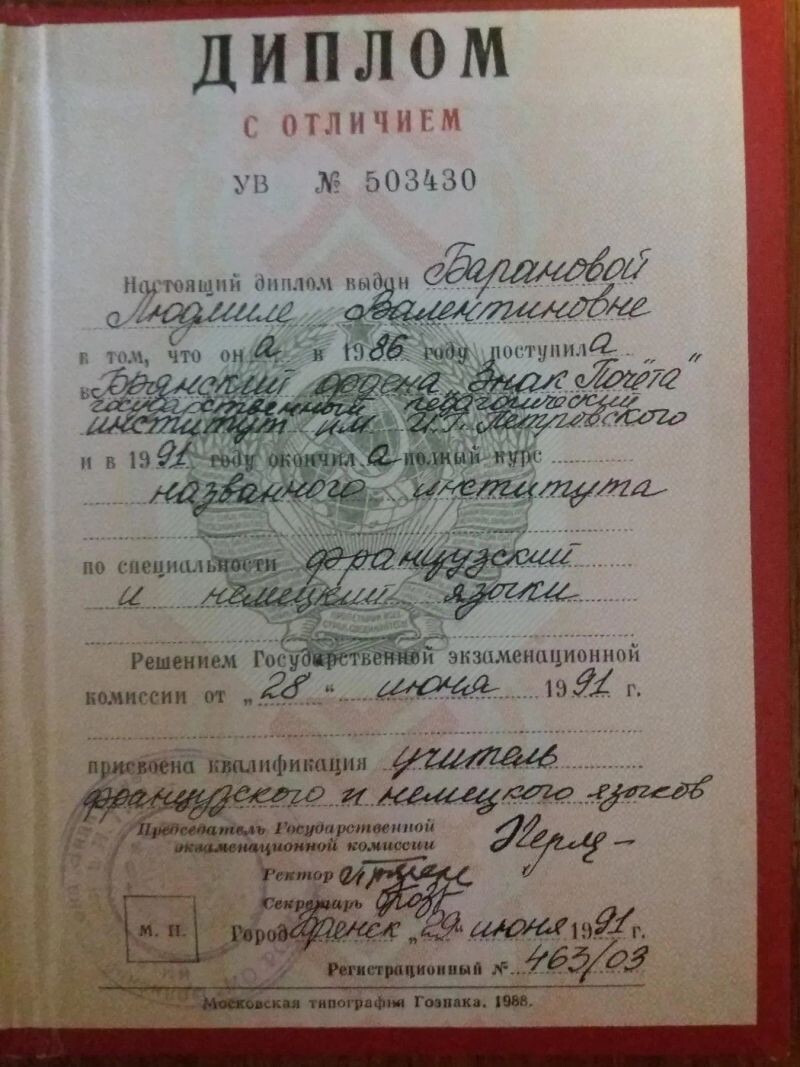 ДИПЛОМ
С ОТЛИЧИЕМ
УВ № 503430
Настоящий диплом выдан Барановой
Людмиле Валентиновне
в том, что он а в 1986 году поступил а
в Брянский ордена „Знак Почёта"
государственный педагогический
институт им И.Г. Петровского
и в 1991 году окончил а полный курс
названного института
по специальности французский
и немецкий языки
Решением Государственной экзаменационной
комиссии от „28" июня 1991 г.
присвоена квалификация учитель
французского и немецкого языков
Председатель Государственной
экзаменационной комиссии
Ректор
Секретарь
М. П. Город Брянск „29" июня 1991 г.
Регистрационный № 463/03
Московская типография Гознака. 1988.